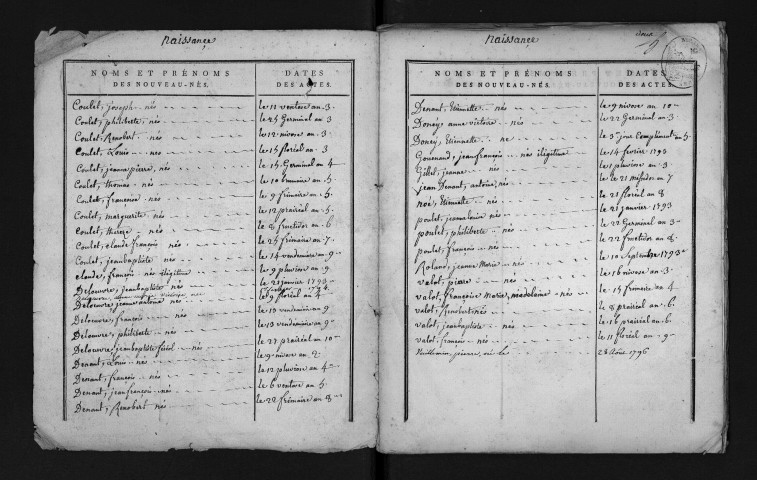 Naissance
NOMS ET PRÉNOMS DES NOUVEAU-NÉS. DATES DES ACTES.
Coulet, joseph né le 11 ventose an 3.
Coulet, philiberte, né le 25 Germinal an 3
Coulet, Renobert né le 12 nivose an 3.
Coulet, Louis né le 15 floréal an 3.
Coulet, jeanne pierre, né le 15 Germinal an 4
Coulet, thomas né le 10 brumaire an 5.
Coulet, françoise né le 9 frimaire an 5.
Coulet, marguerite né le 12 prairéal an 5.
Coulet, therese né le 8 fructidor an 6.
Coulet, claude françois né le 25 frimaire an 7.
Coulet, jeanbaptiste né le 14 vendemiaire an 9
claude, françois né illégitime le 9 pluviose an 9.
Delouvre, jeanbaptiste né le 21 janvier 1793
Delouvre, jeanne antoine né le 9 floréal an 4
Delouvre, françois né le 13 vendemiaire an 9
Delouvre, philiberte né le 13 vendemiaire an 9
Delouvre, jeanbaptiste né le 27 prairéal an 10
Denant, Louis né le 9 nivose an 2.
Denant, françois né le 12 pluviose an 4
Denant, jeanfrançois né le 6 ventose an 5.
Denant, Renobert né le 22 frimaire an 8
Naissance
NOMS ET PRÉNOMS DES NOUVEAU-NÉS. DATES DES ACTES.
Denant, Etiennette né le 9 nivose an 10
Doney, anne victoire né le 22 Germinal an 3
Doney, Etiennette né le 3 jour Compliment an 5.
Gouenand, jeanfrançois né illégitime le 14 fevrier 1793
Gillet, jeanne né le 1 pluviose an 3
jean Denant, antoine, né le 21 messidor an 7
noé, Etiennette né le 21 floréal an 8
poulet, jeanne né le 21 janvier 1793
poulet, philiberte né le 22 Germinal an 3
poulet, françois né le 22 fructidor an 8
Roland, jeanne Marie né le 10 Septembre 1793
valot, pierre né le 16 nivose an 3.
valot, françoise Marie, madelaine né le 15 frimaire an 4
valot, Renobert né le 8 prairéal an 6.
valot, jeanbaptiste né le 16 prairéal an 6.
valot, françois né le 11 floréal an 9
Vuillemin, pierre, né le 28 Aout 1796